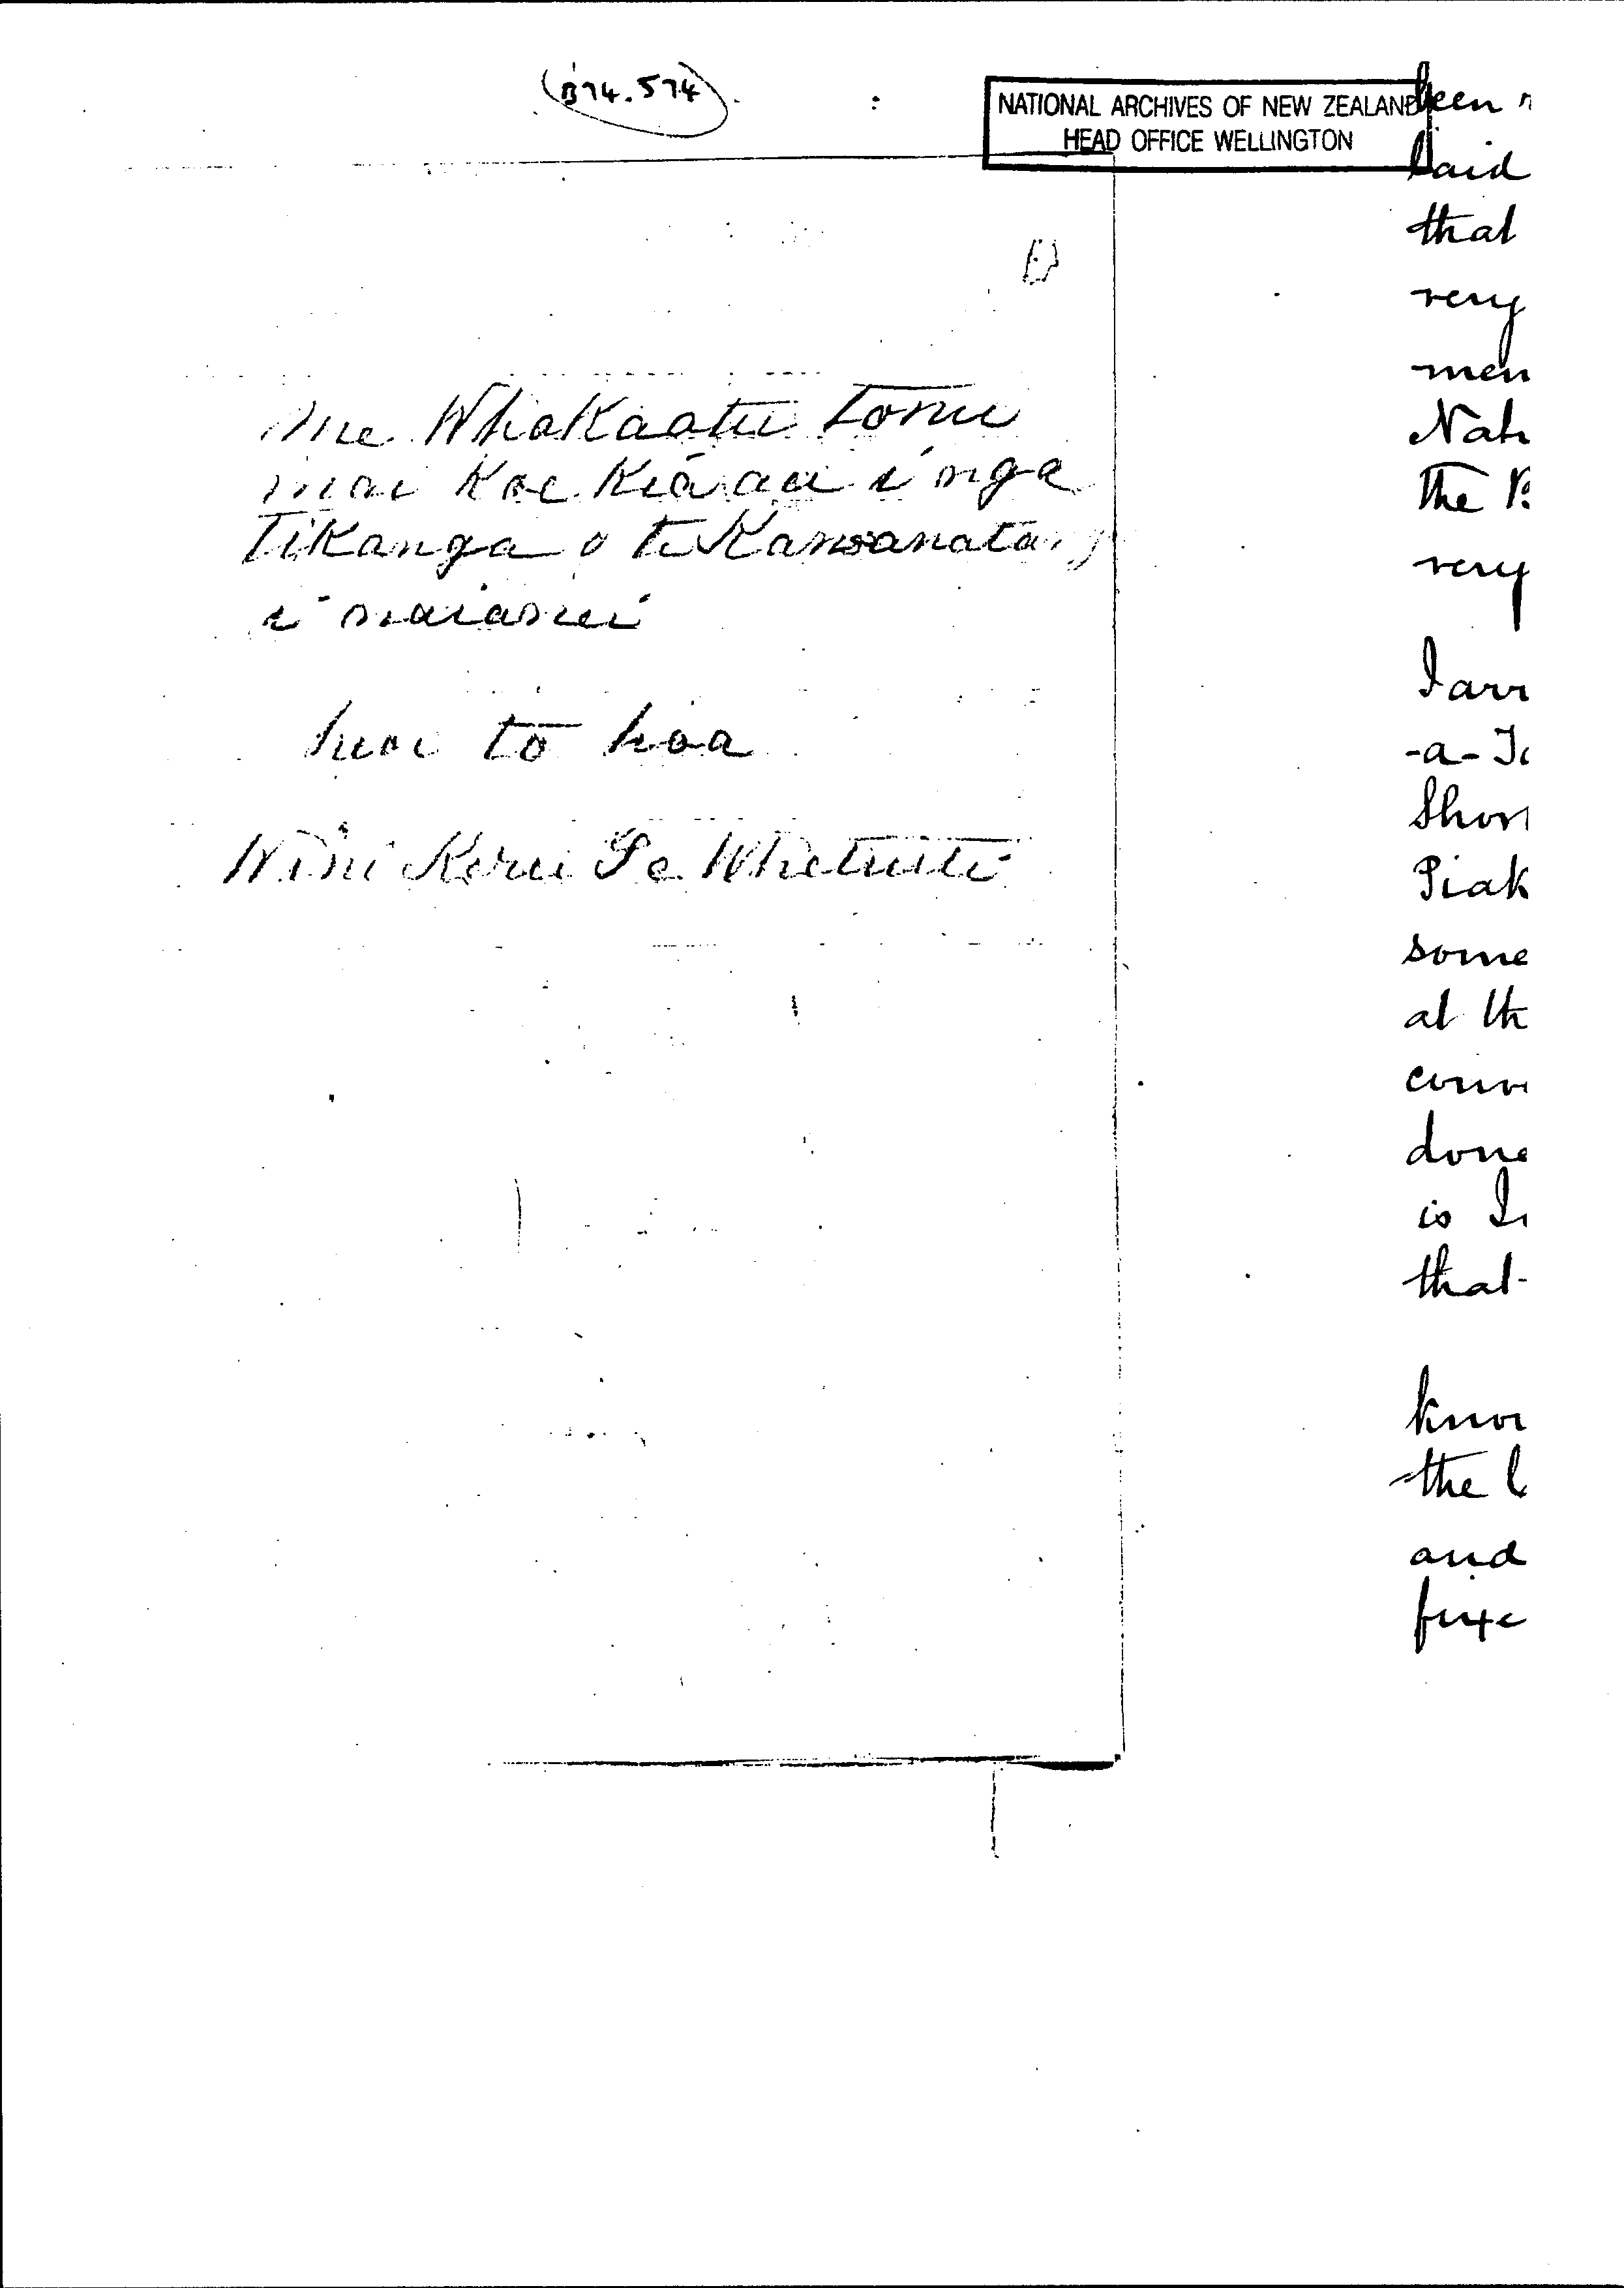 B74.574
NATIONAL ARCHIVES OF NEW ZEALAND
HEAD OFFICE WELLINGTON
me Whakaatu tonu
mai Koe Kia au i nga
Tikanga o te Kawanatang
i naianei
hei to hoa
Te Whetuiti
been
said
that
very
men
Nati
the
very
I arr
-a-
Shor
Piak
some
at th
conv
done
is
that-
know
the
and